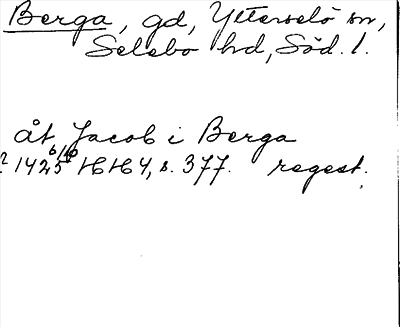 Berga, gd, Ytterselö sn,
Selebo hd, Söd. l.
åt Jacob i Berga
? 1425 6/10 HH 4, s. 377. regest.